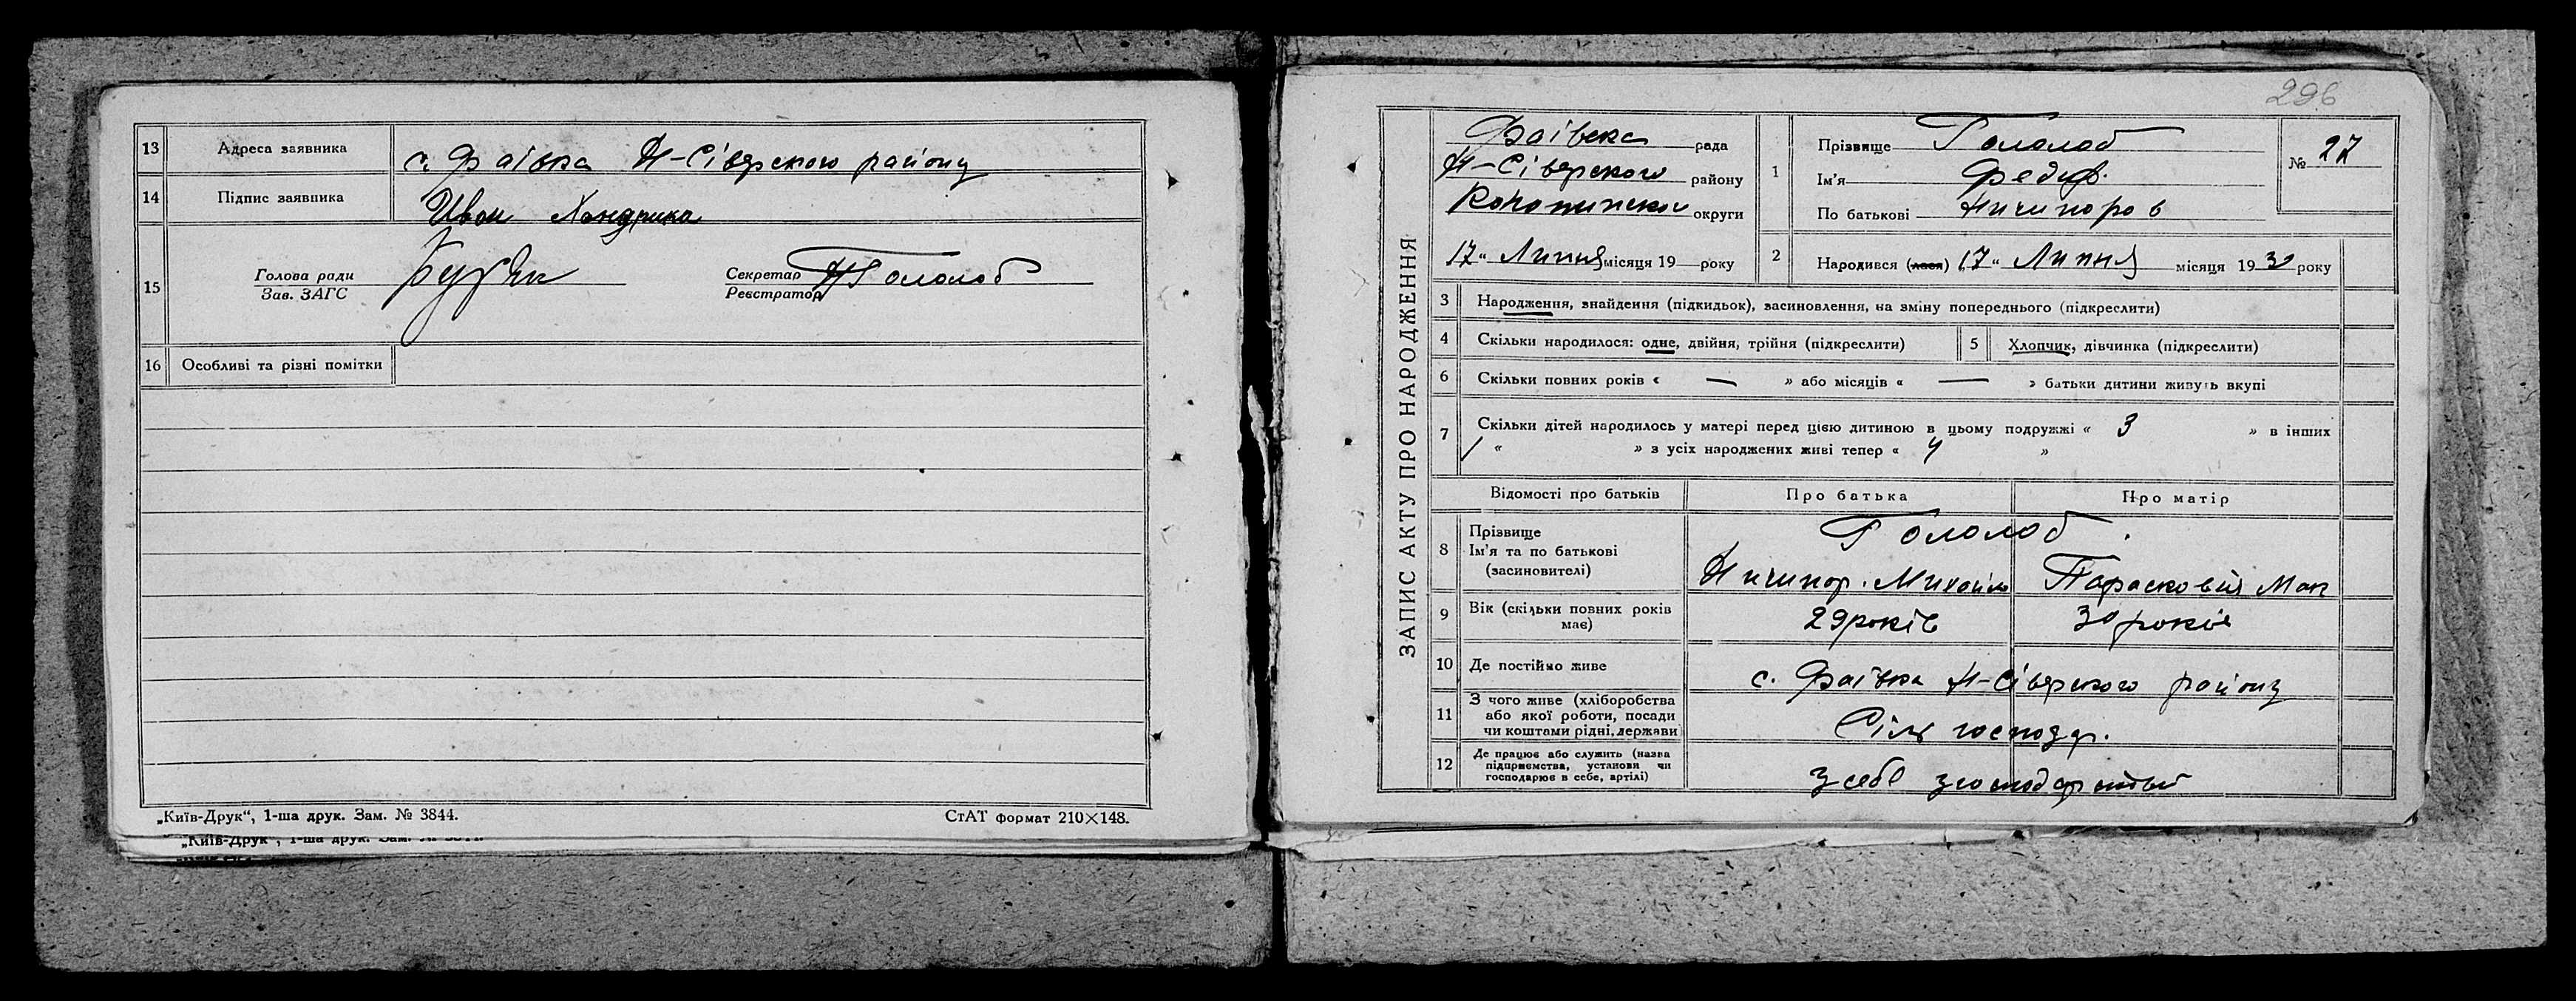 13 Адреса заявника с. Фаївка Н-Сіверского району
14 Підпис заявника Иван Хандрика
15 Голова ради Секретар Н Гололоб
Зав. ЗАГС Реєстратор
16 Особливі та різні помітки
„Київ-Друк“, 1-ша друк. Зам. № 3844. СтАТ формат 210×148.
„Київ-Друк“, 1-ша друк. Зам. №
296
ЗАПИС АКТУ ПРО НАРОДЖЕННЯ
Фаївська рада
Н-Сіверского району
Конотипской округи
17" Липня місяця 19 року
1 Прізвище Гололоб
Ім'я Федір.
По батькові Ничипоров
№ 27
2 Народився (лася) 17" Липня місяця 1930 року
3 Народження, знайдення (підкидьок), засиновлення, на зміну попереднього (підкреслити)
4 Скільки народилося: одне, двійня, трійня (підкреслити) 5 Хлопчик, дівчинка (підкреслити)
6 Скільки повних років « — » або місяців « — » батьки дитини живуть вкупі
7 Скільки дітей народилось у матері перед цією дитиною в цьому подружжі « 3 » в інших
1 « » з усіх народжених живі тепер « 4 »
Відомості про батьків Про батька Про матір
8 Прізвище Гололоб.
Ім'я та по батькові Ничипор. Михайло Парасковія Мак
(засиновителі)
9 Вік (скільки повних років має) 29 років 30 років
10 Де постійно живе с. Фаївка Н-Сіверского району
11 З чого живе (хліборобства
або якої роботи, посади
чи коштами рідні, держави Сіль господр.
12 Де працює або служить (назва
підприємства, установи чи
господарює в себе, артілі) з себе